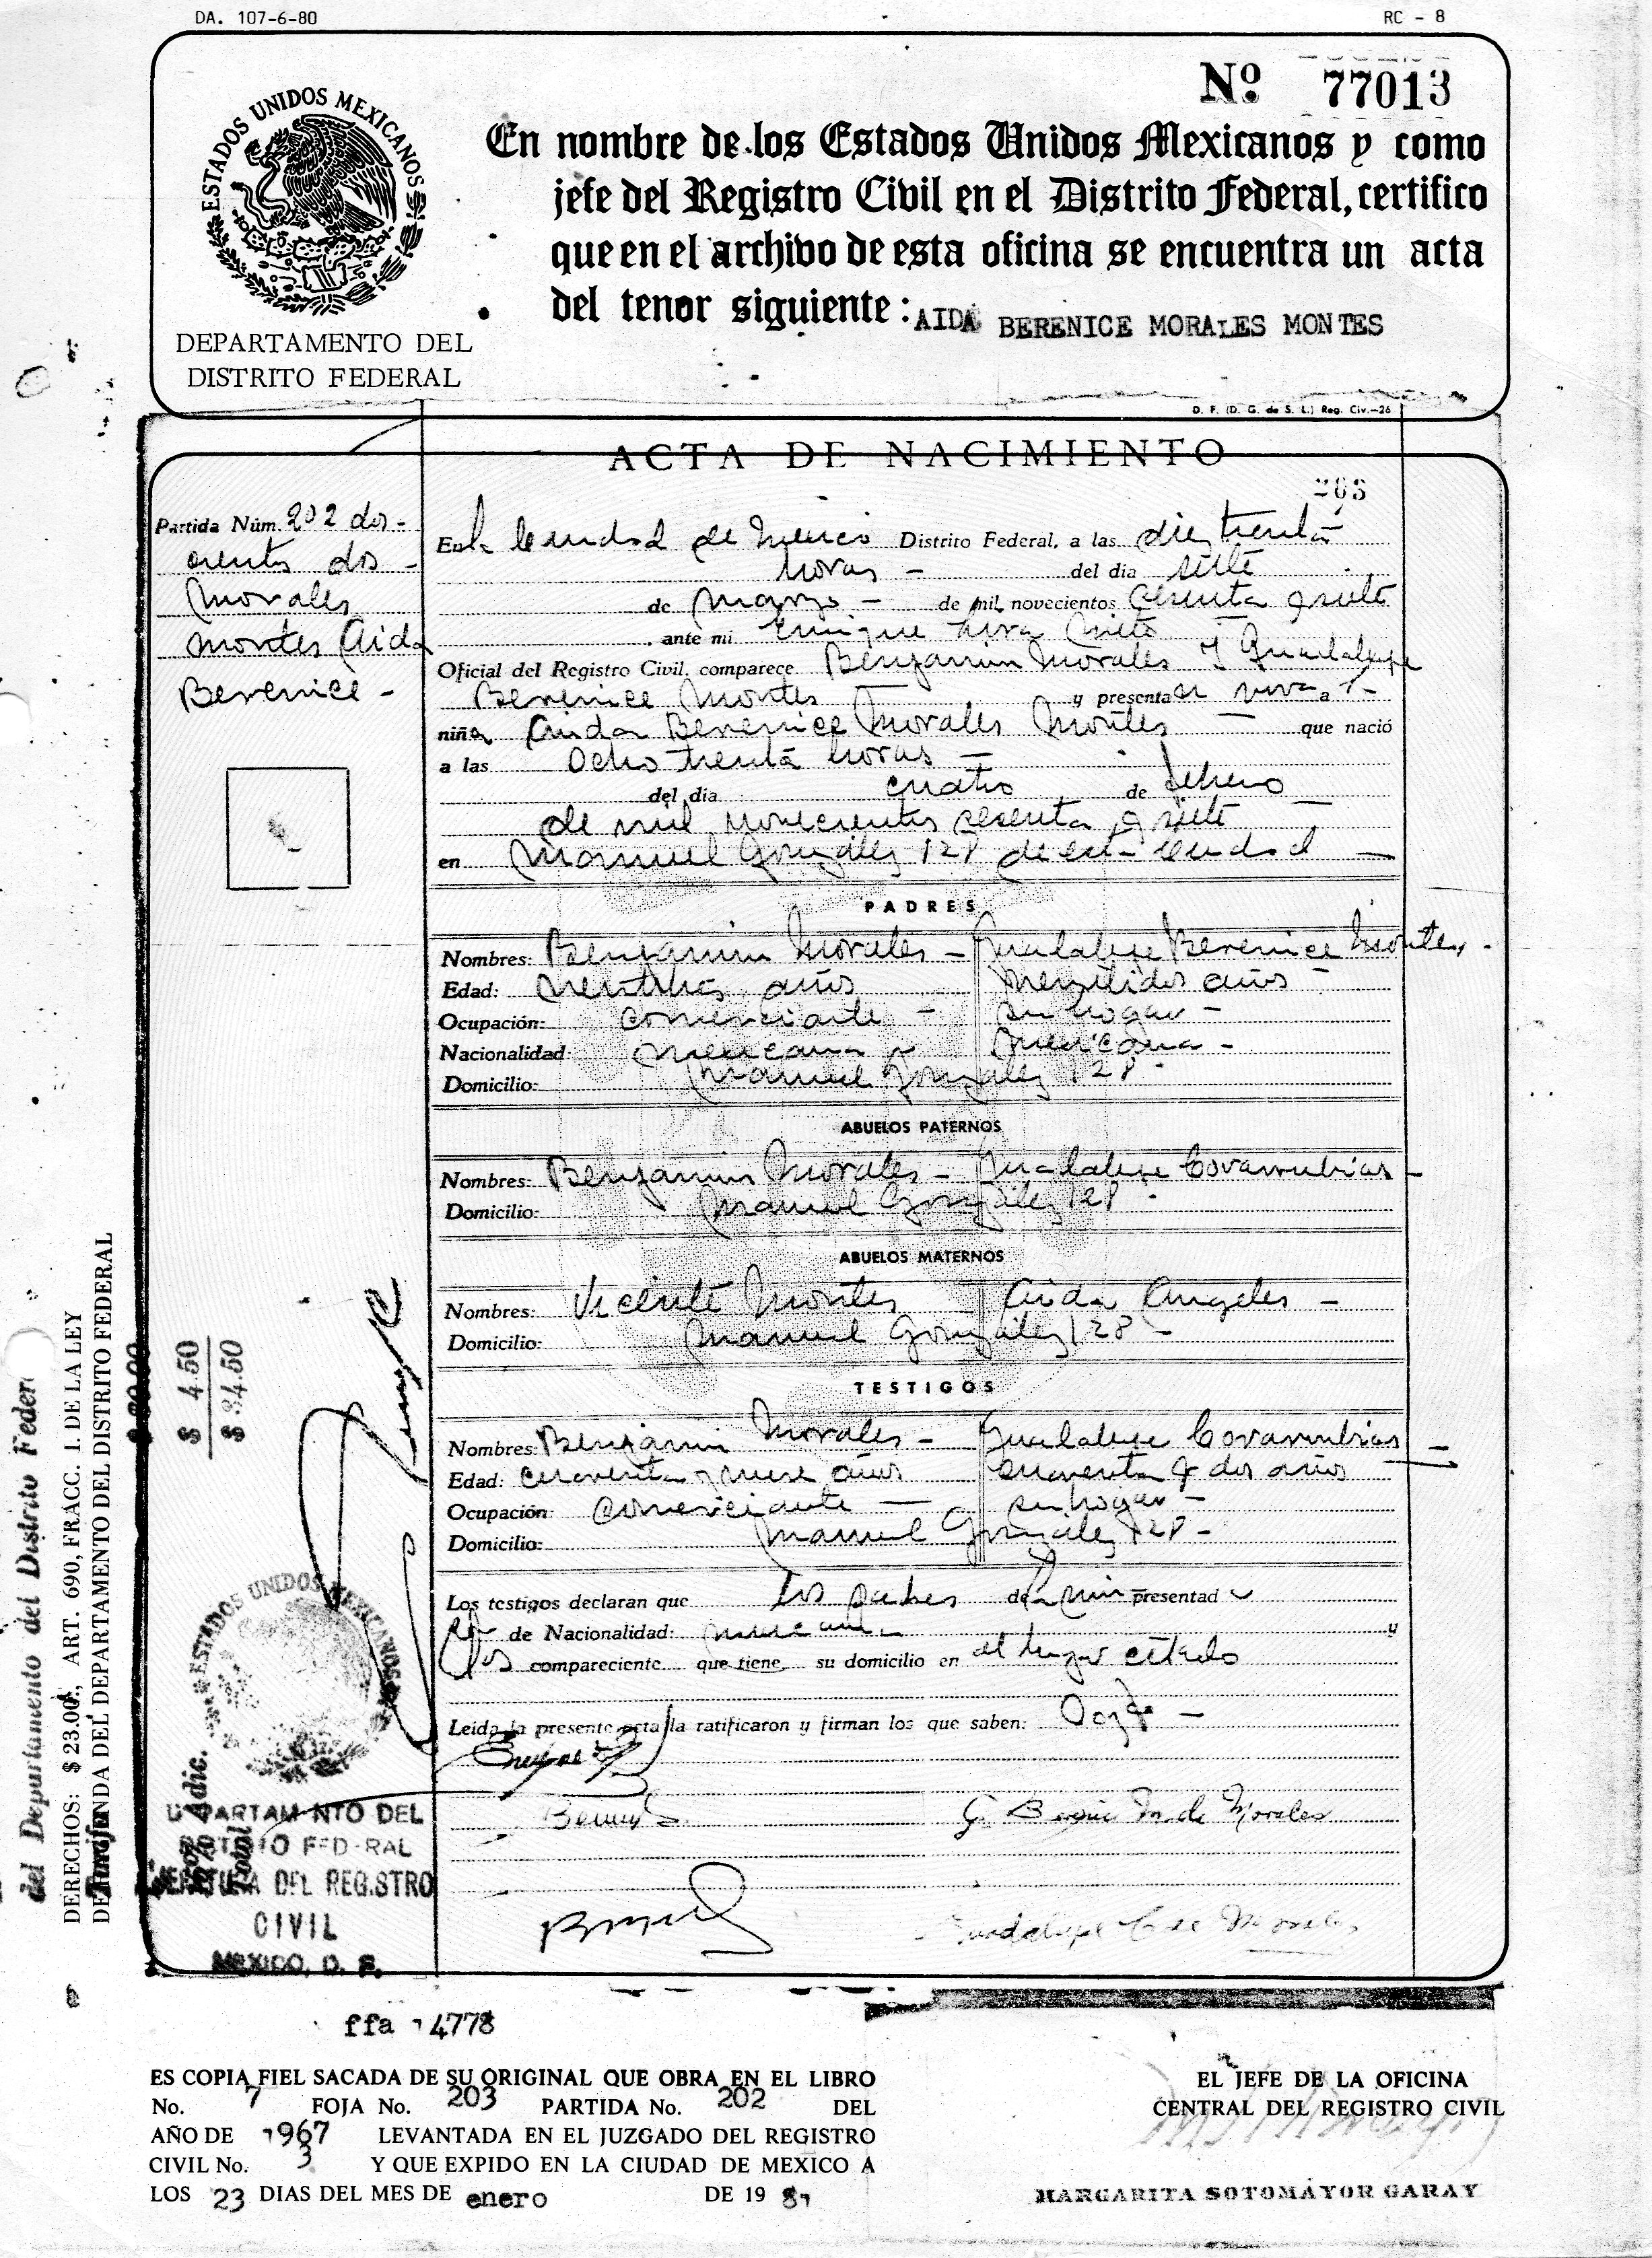 DA. 107-6-80
RC - 8
Nº 77013
ESTADOS UNIDOS MEXICANOS
En nombre de los Estados Unidos Mexicanos y como
jefe del Registro Civil en el Distrito Federal, certifico
que en el archivo de esta oficina se encuentra un acta
del tenor siguiente: AIDA BERENICE MORALES MONTES
DEPARTAMENTO DEL
DISTRITO FEDERAL
D. F. (D. G. de S. L.) Reg. Civ.—26
ACTA DE NACIMIENTO
Partida Núm. 202 dos-
cientos dos -
Morales
Montes Aida
Berenice -
En la Ciudad de Mexico Distrito Federal, a las diez treinta
horas - del dia siete
de marzo - de mil novecientos sesenta y siete
ante mi Enrique
Oficial del Registro Civil, comparece Benjamin Morales y Guadalupe
Berenice Montes y presentan viva a la
niña Aida Berenice Morales Montes - que nació
a las Ocho treinta horas -
del dia cuatro de febrero
de mil novecientos sesenta y siete
en Manuel González 128 de esta Ciudad -
PADRES
Nombres: Benjamin Morales - Guadalupe Berenice Montes -
Edad: años veintidos años -
Ocupación: comerciante - su hogar -
Nacionalidad: mexicana mexicana -
Domicilio: Manuel González 128 -
ABUELOS PATERNOS
Nombres: Benjamin Morales - Guadalupe Covarrubias -
Domicilio: Manuel González 128 -
ABUELOS MATERNOS
Nombres: Vicente Montes Aida Angeles -
Domicilio: Manuel González 128 -
TESTIGOS
Nombres: Benjamin Morales - Guadalupe Covarrubias -
Edad: cuarenta y nueve años cuarenta y dos años
Ocupación: comerciante - su hogar -
Domicilio: Manuel González 128 -
Los testigos declaran que los padres de la niña presentada
de Nacionalidad: mexicana y
los compareciente que tiene su domicilio en el lugar citado
Leida la presente acta la ratificaron y firman los que saben: Doy fe -
G. Berenice M. de Morales
Guadalupe C. de Morales
del Departamento del Distrito Feder
DERECHOS: $ 23.00, ART. 690, FRACC. I. DE LA LEY
DE HACIENDA DEL DEPARTAMENTO DEL DISTRITO FEDERAL
$ 4.50
$ 34.50
ESTADOS UNIDOS MEXICANOS
DEPARTAMENTO DEL
DISTRITO FEDERAL
JEFATURA DEL REGISTRO
CIVIL
MEXICO, D. F.
ffa 14778
ES COPIA FIEL SACADA DE SU ORIGINAL QUE OBRA EN EL LIBRO
No. 7 FOJA No. 203 PARTIDA No. 202 DEL
AÑO DE 1967 LEVANTADA EN EL JUZGADO DEL REGISTRO
CIVIL No. 3 Y QUE EXPIDO EN LA CIUDAD DE MEXICO A
LOS 23 DIAS DEL MES DE enero DE 19 81
EL JEFE DE LA OFICINA
CENTRAL DEL REGISTRO CIVIL
MARGARITA SOTOMAYOR GARAY